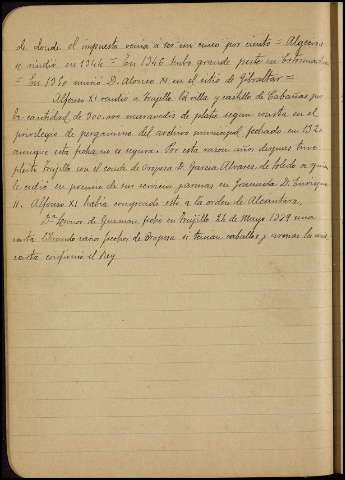 de donde el impuesto venia a ser un cinco por ciento = Algeciras
se rindió en 1344 = En 1346 hubo grande peste en Extremadura
= En 1350 murió D. Alonso XI en el sitio de Gibraltar =
Alfonso XI vendió a Trujillo la villa y castillo de Cabañas por
la cantidad de 300.000 maravedis de plata segun consta en el
privilegio de pergamino del archivo municipal fechado en 1320
aunque esta fecha no es segura. Por esta razon años despues tuvo
pleito Trujillo con el conde de Oropesa D. Garcia Alvarez de Toledo a quien
le cedió en premio de sus servicios D. Enrique
II. Alfonso XI habia comprado este a la orden de Alcantara.
Dª Leonor de Guzman fechó en Trujillo 24 de Mayo 1329 una
carta
carta confirmó el Rey